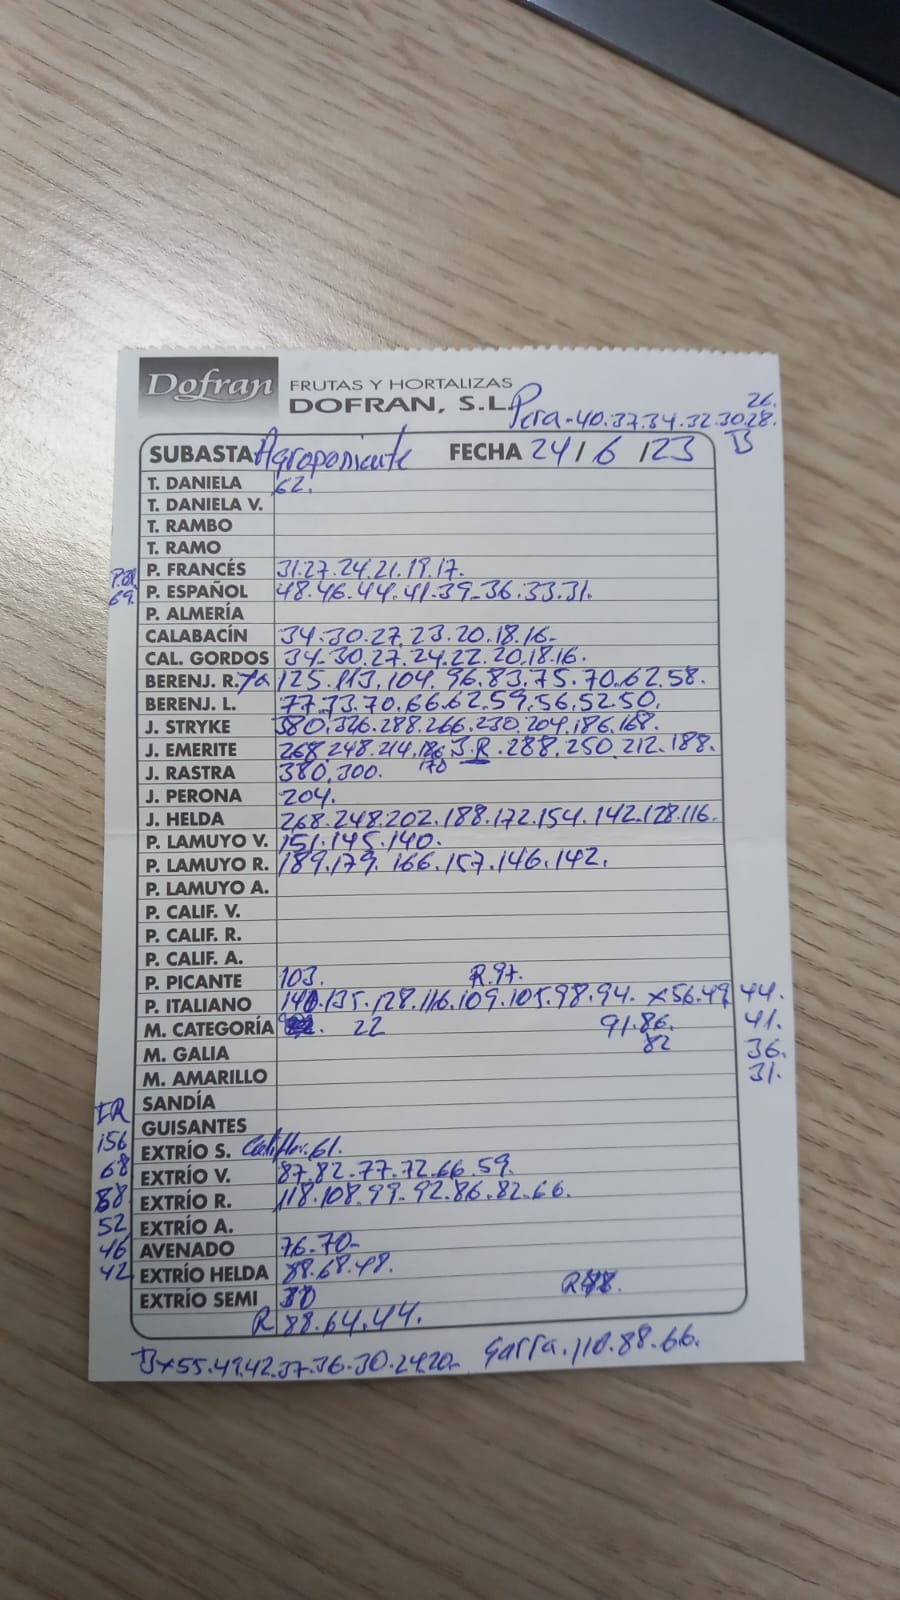 Dofran FRUTAS Y HORTALIZAS
DOFRAN, S.L.
Pera-40.37.34.32.30.28.
26.
SUBASTA Agroponiente FECHA 24/6/23 B
T. DANIELA 62.
T. DANIELA V.
T. RAMBO
T. RAMO
P. FRANCÉS 31.27.24.21.19.17.
P. ESPAÑOL 48.46.44.41.39-36.33.31.
69.
P. ALMERÍA
CALABACÍN 34-30.27.23.20.18.16-
CAL. GORDOS 34-30.27.24.22.20.18.16.
BERENJ. R. 125.113.104.96.83.75.70.62.58.
BERENJ. L. 77.73.70.66.62.59.56.52.50.
J. STRYKE 380.326.288.266.230.204.186.168.
J. EMERITE 268.248.214.186 J.R.288.250.212.188.
170
J. RASTRA 380.300.
J. PERONA 204.
J. HELDA 268.248.202.188.172.154.142.128.116.
P. LAMUYO V. 151.145.140.
P. LAMUYO R. 189.179.166.157.146.142.
P. LAMUYO A.
P. CALIF. V.
P. CALIF. R.
P. CALIF. A.
P. PICANTE 103. R.97.
P. ITALIANO 140.135.128.116.109.105.98.94. x56.49 44.
M. CATEGORÍA 22 91.86. 41.
M. GALIA 82 36.
M. AMARILLO 31.
SANDÍA
GUISANTES
156 EXTRÍO S. 61.
68 EXTRÍO V. 87.82.77.72.66.59.
58 EXTRÍO R. 118.108.99.92.86.82.66.
52 EXTRÍO A.
46 AVENADO 76-70-
42 EXTRÍO HELDA 88.68.48.
EXTRÍO SEMI
R 88.64.44.
Bx55.49.42.37.36.30.24.20- Garra.110.88.66.